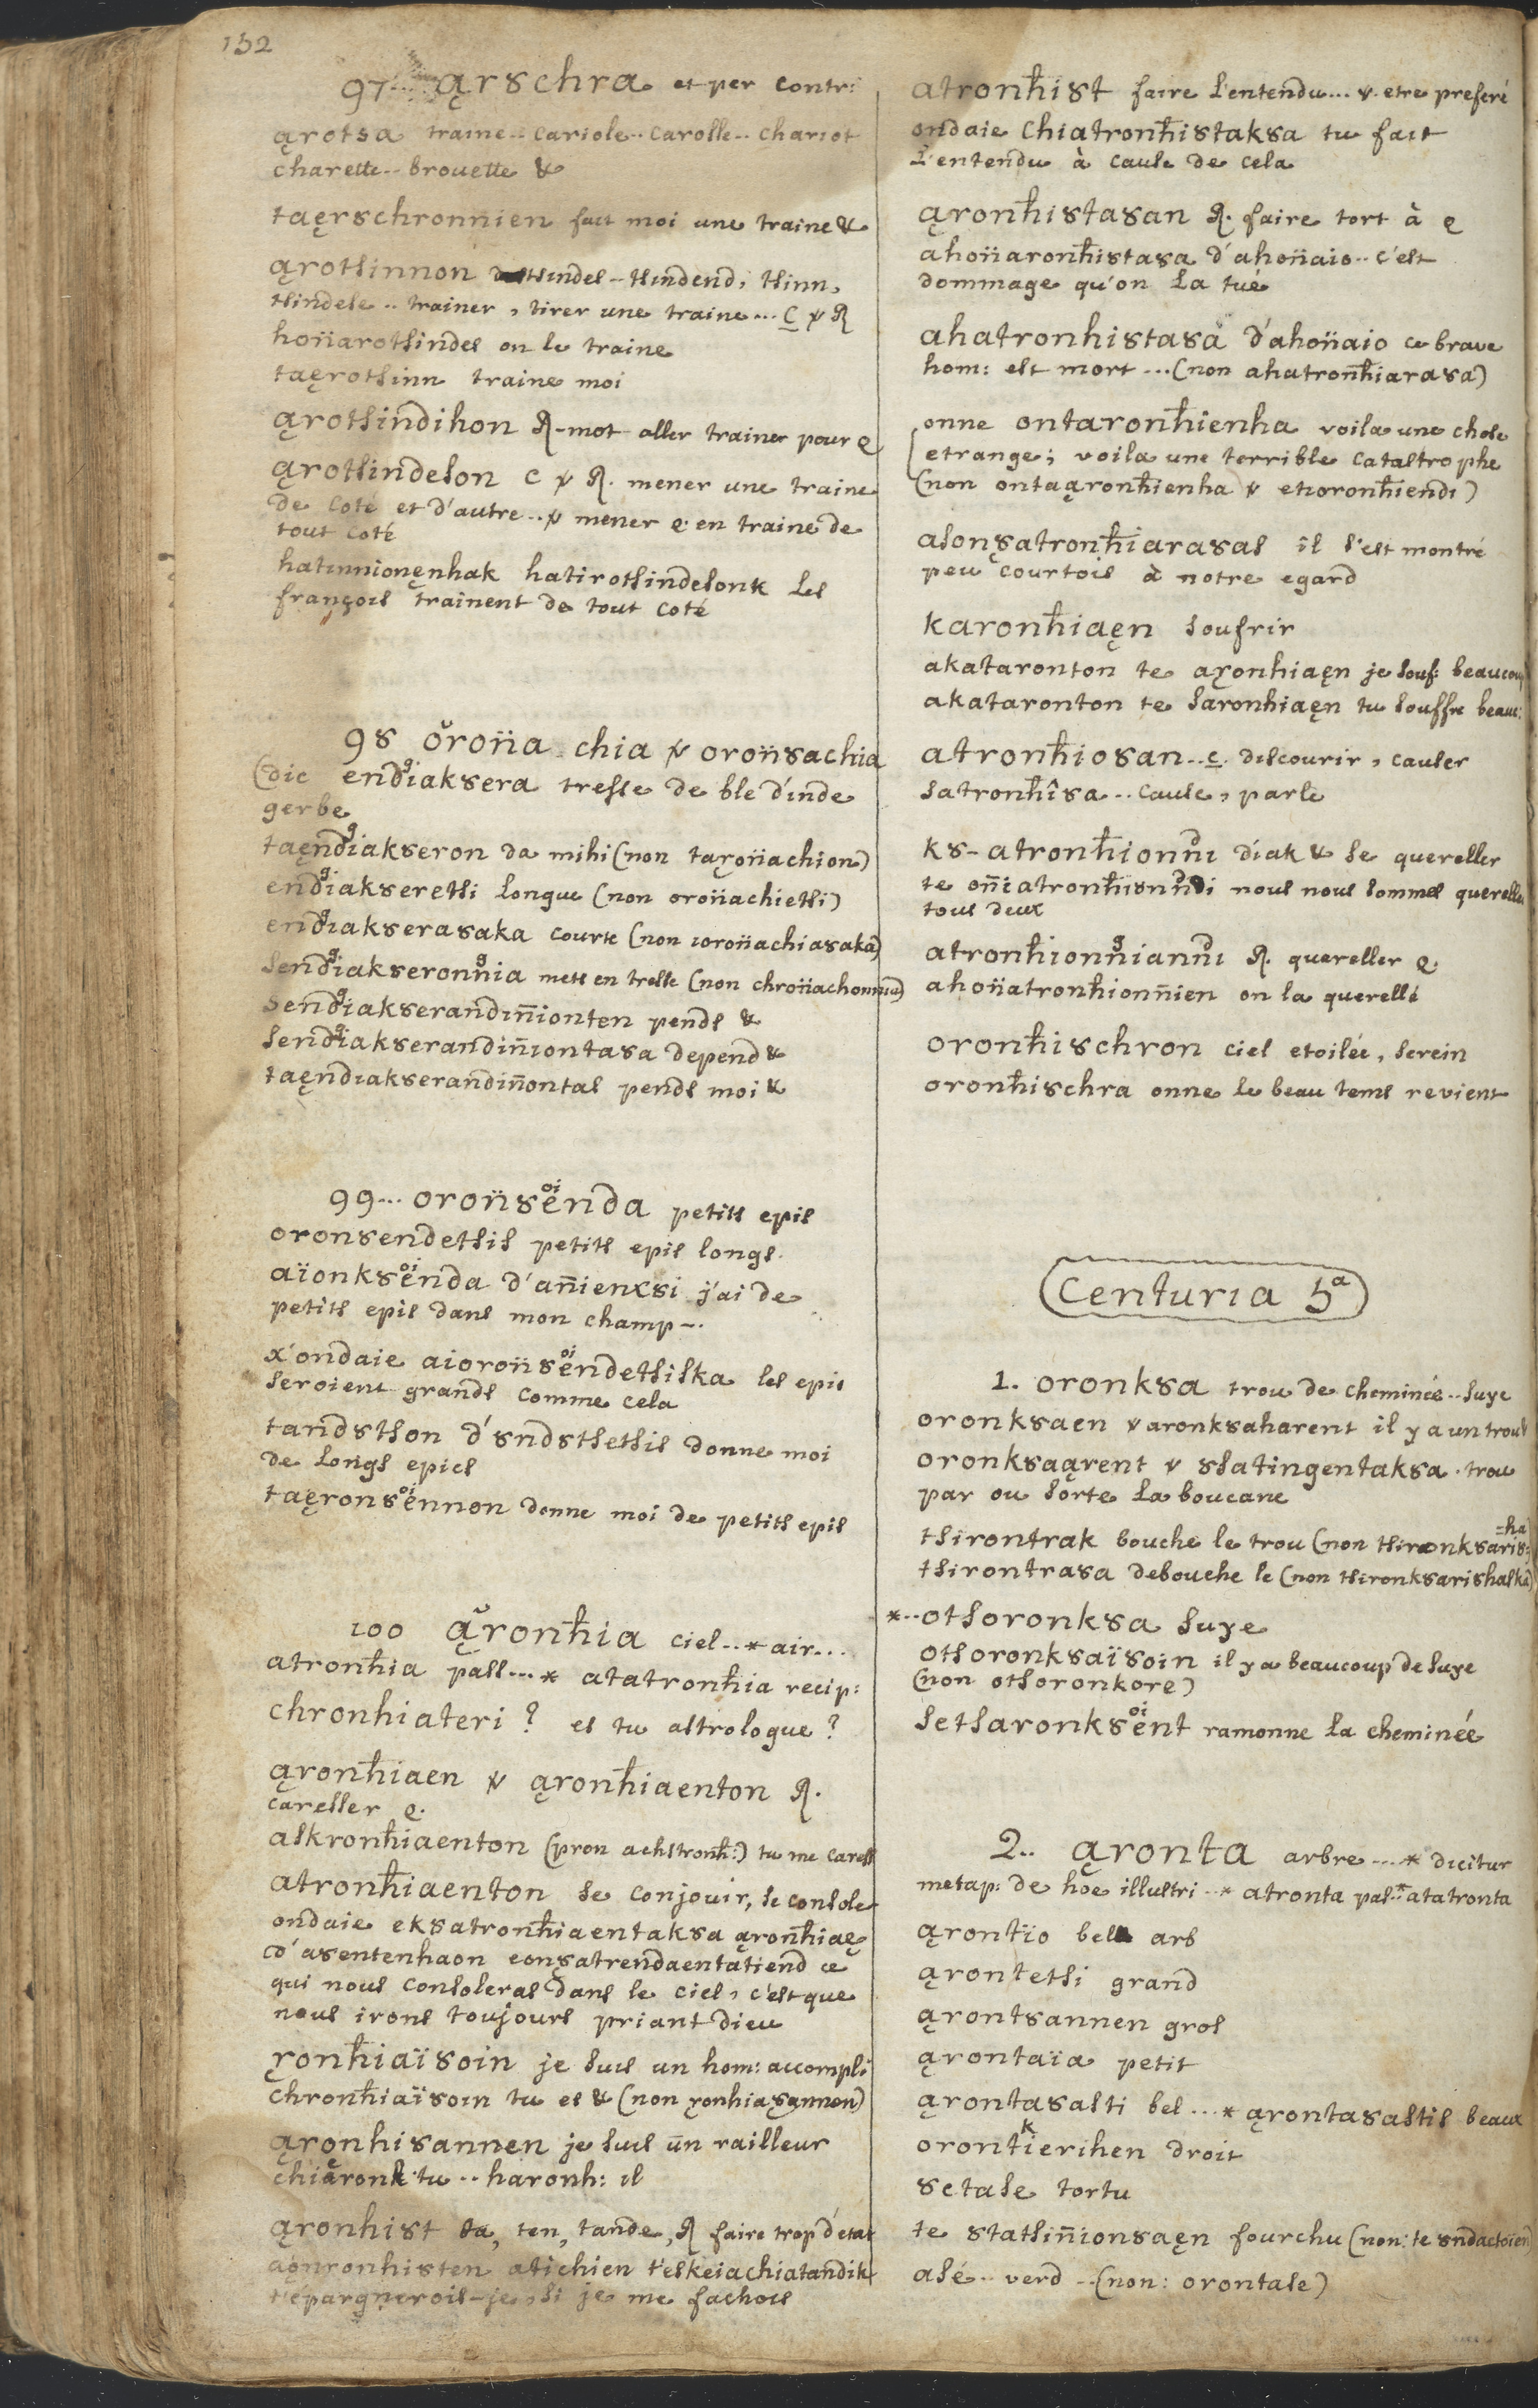 152
97... ąr8chra et per contr:
ąrotsa traine.. cariole.. carolle.. chariot
charette.. brouette &
taęr8chronnien fait moi une traine &
ąrotsinnon tsindes - tsindend, tsinn,
tsindese.. trainer, tirer une traine... C v R
hon̈arotsindes on le traine
taęrotsinn traine moi
ąrotsindihon R - mot aller trainer pour q
ąrotsindeson C v R. mener une traine
de coté et d'autre.. v mener q en traine de
tout coté
hatinnionęnhak hatirotsindesonk les
françois trainent de tout coté
98 oron̈a chia v oron̈8achia
(dic endiak8era tresse de ble d'inde
gerbe
taęndiak8eron da mihi (non taɣon̈achion)
endiak8eretsi longue (non oron̈achietsi)
endiak8erasaka courte (non ioron̈achiasaka)
sendiak8eronnia mets en tresse (non chron̈achonnia)
sendiak8erandin̄ionten pends &
sendiak8erandin̄iontasa depend &
taęndiak8erandin̄ontas pends moi &
99... oron̈8enda petits epis
oron8endetsis petits epis longs.
aïonk8enda d'an̄ienx8i j'ai de
petits epis dans mon champ -.
x'ondaie aioron̈8endetsiska les epis
seroient grands comme cela
tand8ton d'8nd8tetsis donne moi
de longs epics
taęron8ennon donne moi de petits epis
100 ąronħia ciel.. * air...
atronħia pass... * atatronħia recip:
chronhiateri? es tu astrologue?
ąronħiaen v ąronħiaenton R.
caresser q.
askronħiaenton (pron achstronħ:) tu me caress
atronħiaenton se conjouir, se consoler
ondaie ek8atronħiaentak8a ąronħiaę
qui nous consoleras dans le ciel, c'est que
nous irons toujours priant dieu
ɣonħiaï8oin je suis un hom: accompli
chronħiaï8oin tu es & (non ɣonhiaɣannen)
ąronhi8annen je suis un railleur
chiaronh: tu.. haronh: il
ąronhist ta, ten, tande, R faire trop d'etat
t'epargnerois-je, si je me fachois
atronħist faire l'entendu... v. etre preferé
ondaie chiatronħistak8a tu fait
l'entendu à cause de cela
ąronħistasan R. faire tort à q
ahon̈aronħistasa d'ahon̈aio.. c'est
dommage qu'on la tué
ahatronhistasa d'ahon̈aio ce brave
hom: est mort... (non ahatronħiarasa)
onne ontaronħienha voila une chose
etrange; voila une terrible catastrophe
(non ontaąronħienha v etioronħiendi)
ason8atronħiarasas il s'est montré
peu courtois à notre egard
karonħiaęn soufrir
akataronton te aɣonhiaęn je souf: beaucoup
akataronton te saronhiaęn tu souffre beauc:
atronħiosan.. c. discourir, causer
satronħîsa.. cause, parle
k8-atronħionni diak & se quereller
te on̄iatronħionni nous nous sommes querellés
tous deux
atronħionnianni R. quereller q.
ahon̈atronhionn̄ien on la querellé
oronħi8chron ciel etoilée, serein
oronħi8chra onne le beau tems revient
Centuria 5ᵃ
1. oronk8a trou de cheminée.. suye
oronk8aen v aronk8aharent il y a un trou
oronk8aąrent v 8satingentak8a. trou
par ou sorte la boucane
tsirontrak bouche le trou (non tsironk8aris:
=ha)
tsirontrasa debouche le (non tsironk8arishaska)
*.. otsoronk8a suye
otsoronk8aï8oin il y a beaucoup de suye
(non otsoronkore)
setsaronk8ent ramonne la cheminée
2.. ąronta arbre... * dicitur
metap: de hoe illustri.. * atronta pas.* atatronta
ąrontïo bel arb
ąrontetsi grand
ąront8annen gros
ąrontaïa petit
ąronta8asti bel... * ąronta8astis beaux
orontierihen droit
8etase tortu
te 8tatsin̄ion8aęn fourchu (non: te 8ndactoïen)
asé.. verd.. (non: orontase)